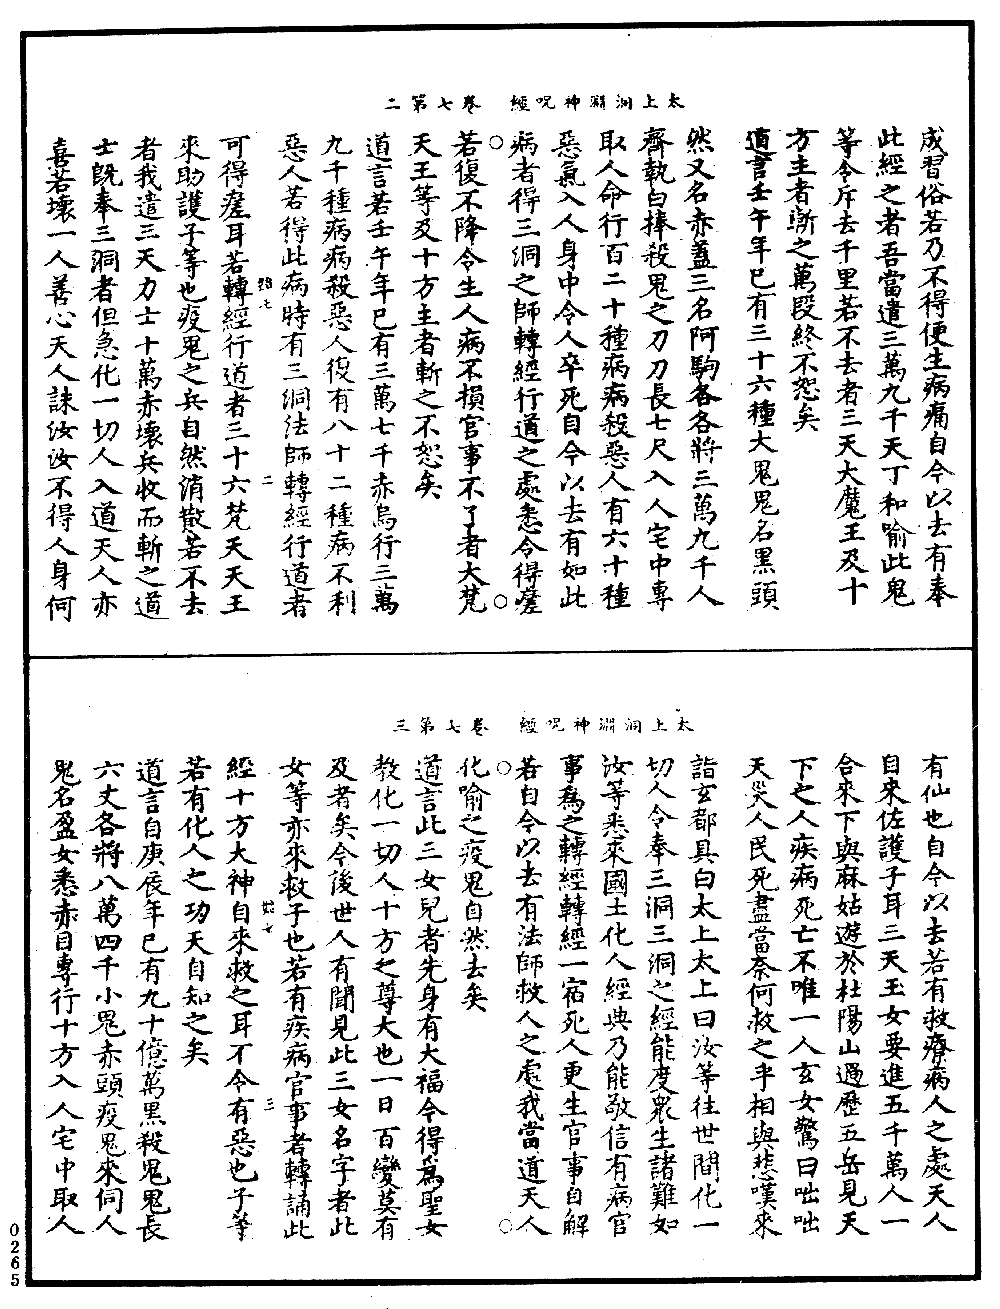 太上洞淵神呪經　卷七第二
成習俗若乃不得便生病痛自今以去有奉
此經之者吾當遣三萬九千天丁和喻此鬼
等令斥去千里若不去者三天大魔王及十
方主者斬之萬段終不恕矣
道言壬午年已有三十六種大鬼鬼名黑頭
然又名赤蓋三名阿駒各各將三萬九千人
齊執白棒殺鬼之刀刀長七尺入人宅中專
取人命行百二十種病病殺惡人有六十種
惡氣入人身中令人卒死自今以去有如此
病者得三洞之師轉經行道之處悉令得瘥
若復不降令生人病不損官事不了者大梵
天王等及十方主者斬之不恕矣
道言若壬午年已有三萬七千赤烏行三萬
九千種病病殺惡人復有八十二種病不利
惡人若得此病時有三洞法師轉經行道者
始七　二
可得瘥耳若轉經行道者三十六梵天天王
來助護子等也疫鬼之兵自然消散若不去
者我遣三天力士十萬赤壞兵收而斬之道
士既奉三洞者但急化一切人入道天人亦
喜若壞一人善心天人誅汝汝不得人身何
太上洞淵神呪經　卷七第三
有仙也自今以去若有救療病人之處天人
自來佐護子耳三天玉女要進五千萬人一
合來下與麻姑遊於杜陽山過歷五岳見天
下之人疾病死亡不唯一人玄女驚曰咄咄
天災人民死盡當奈何救之乎相與悲嘆來
詣玄都具白太上太上曰汝等往世間化一
切人令奉三洞三洞之經能度衆生諸難如
汝等悉來國土化人經典乃能敬信有病官
事爲之轉經轉經一宿死人更生官事自解
若自今以去有法師救人之處我當道天人
化喻之疫鬼自然去矣
道言此三女兒者先身有大福令得爲聖女
教化一切人十方之尊大也一日百變莫有
及者矣今後世人有聞見此三女名字者此
女等亦來救子也若有疾病官事者轉誦此
始七　三
經十方大神自來救之耳不令有惡也子等
若有化人之功天自知之矣
道言自庚辰年已有九十億萬黑殺鬼鬼長
六丈各將八萬四千小鬼赤頭疫鬼來伺人
鬼名盈女悉赤目專行十方入人宅中取人
0265